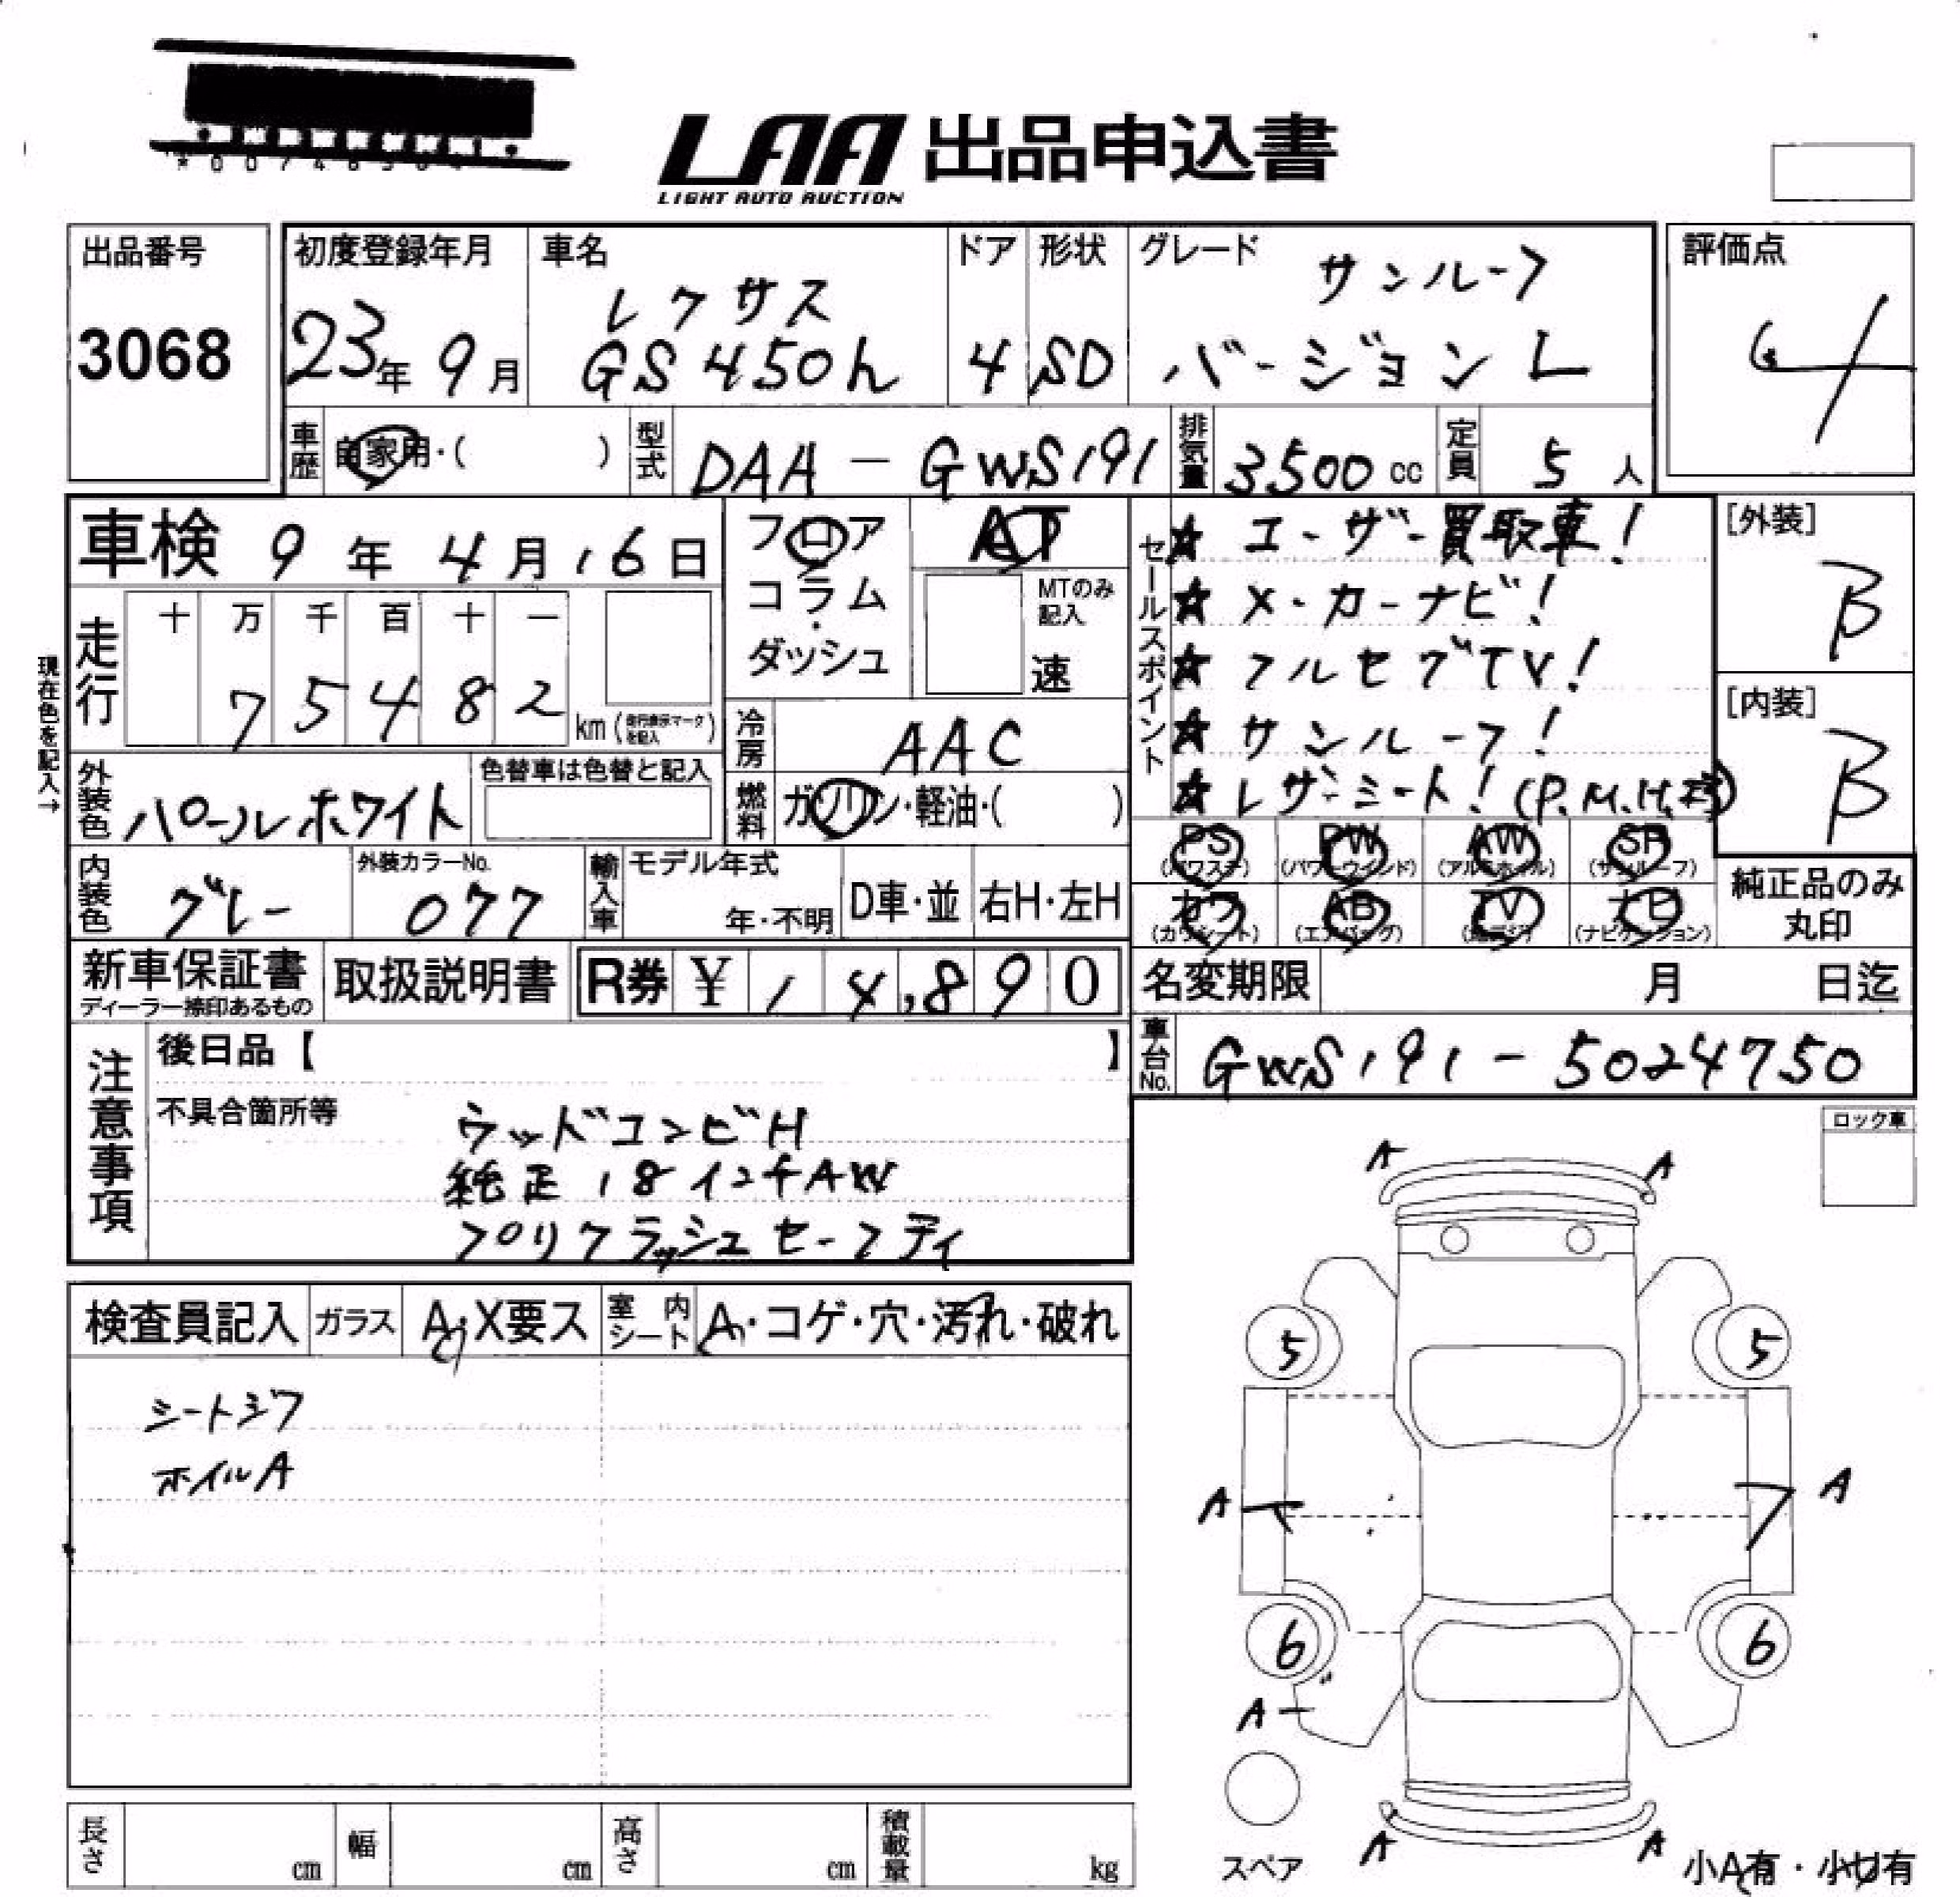 LAA 出品申込書
LIGHT AUTO AUCTION
出品番号
3068
初度登録年月
23年 9月
車名
レクサス
GS450h
ドア
4
形状
SD
グレード
サンルーフ
バージョンL
評価点
4
車歴 自家用・( )
型式 DAA-GWS191
排気量 3500 cc
定員 5 人
車検 9年 4月 16日
フロア
コラム
ダッシュ
AT
MTのみ
記入
速
現在色を記入→
走行
十 万 千 百 十 一
7 5 4 8 2
km (走行表示マークを記入)
冷房 AAC
外装色 パールホワイト
色替車は色替と記入
燃料 ガソリン・軽油・( )
セールスポイント
★ユーザー買取車!
★メーカーナビ!
★フルセグTV!
★サンルーフ!
★レザーシート!(P.M.H.
[外装]
B
[内装]
B
PS PW AW SR
(パワステ) (パワーウインド) (アルミホイル) (サンルーフ)
カワ AB TV ナビ
(カワシート) (エアバッグ) (地デジ) (ナビゲーション)
純正品のみ
丸印
内装色 グレー
外装カラーNo.
077
輸入車
モデル年式
年・不明
D車・並
右H・左H
新車保証書
ディーラー捺印あるもの
取扱説明書
R券 ¥ 14,890
名変期限 月 日迄
車台No. GWS191-5024750
注意事項
後日品【 】
不具合箇所等
ウッドコンビH
純正18インチAW
プリクラッシュセーフティ
ロック車
検査員記入
ガラス A・X要ス
室内シート A・コゲ・穴・汚れ・破れ
シートシワ
ホイルA
A A
5 5
A A
6 6
A
スペア
A A
小A有・小U有
長さ cm
幅 cm
高さ cm
積載量 kg